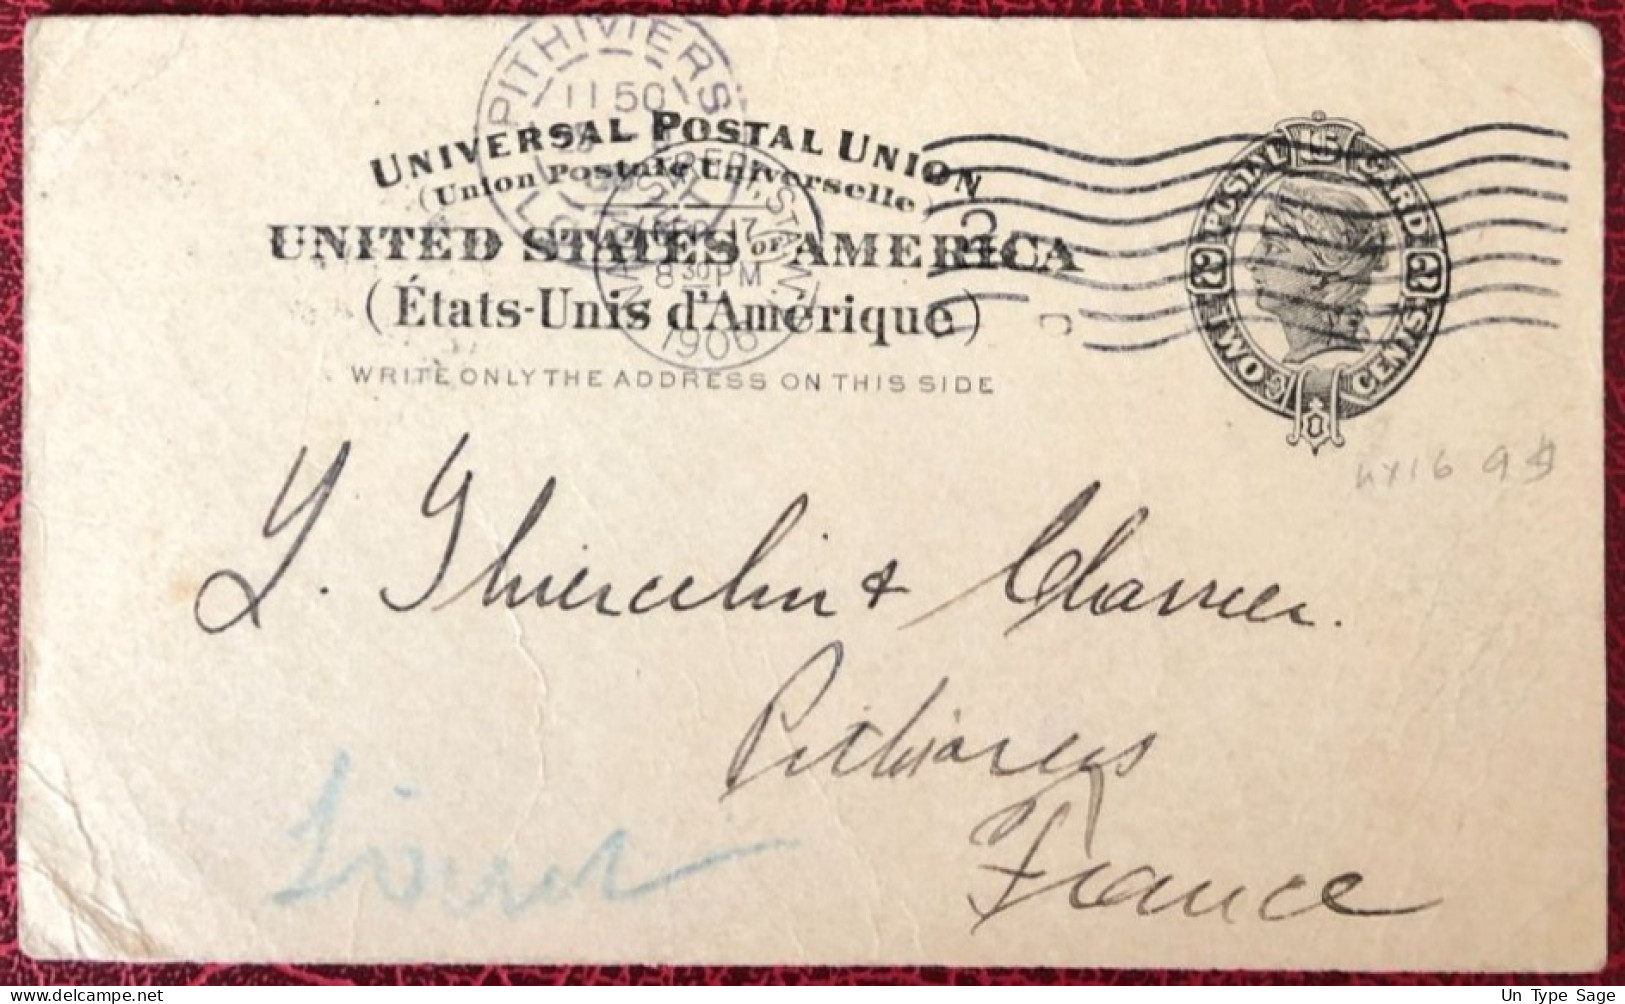 PITHIVIERS
11 50
UNIVERSAL POSTAL UNION
(Union Postale Universelle)
UNITED STATES OF AMERICA
8 30 PM
(États-Unis d'Amérique)
1906
WRITE ONLY THE ADDRESS ON THIS SIDE
3
POSTAL CARD
2 2
TWO CENTS
L. Thiercelin & Charrier.
Pithiviers
France
Loiret
Un Type Sage